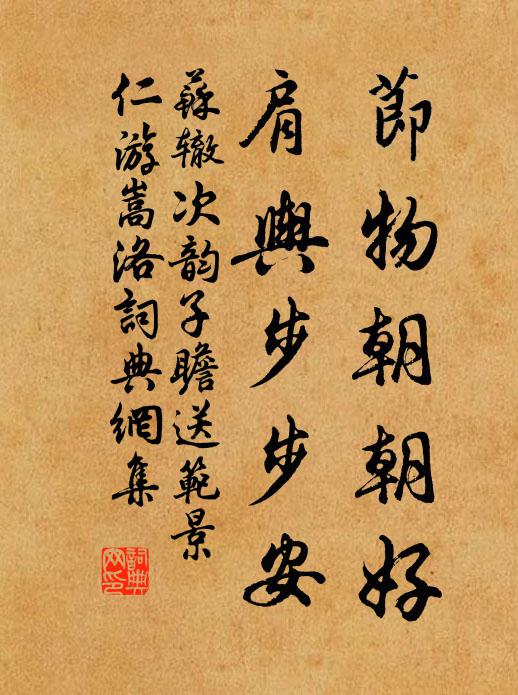 節物朝朝好
肩輿步步安
蘇辙次韵子瞻送範景
仁游嵩洛詞典網集
詞典
网印